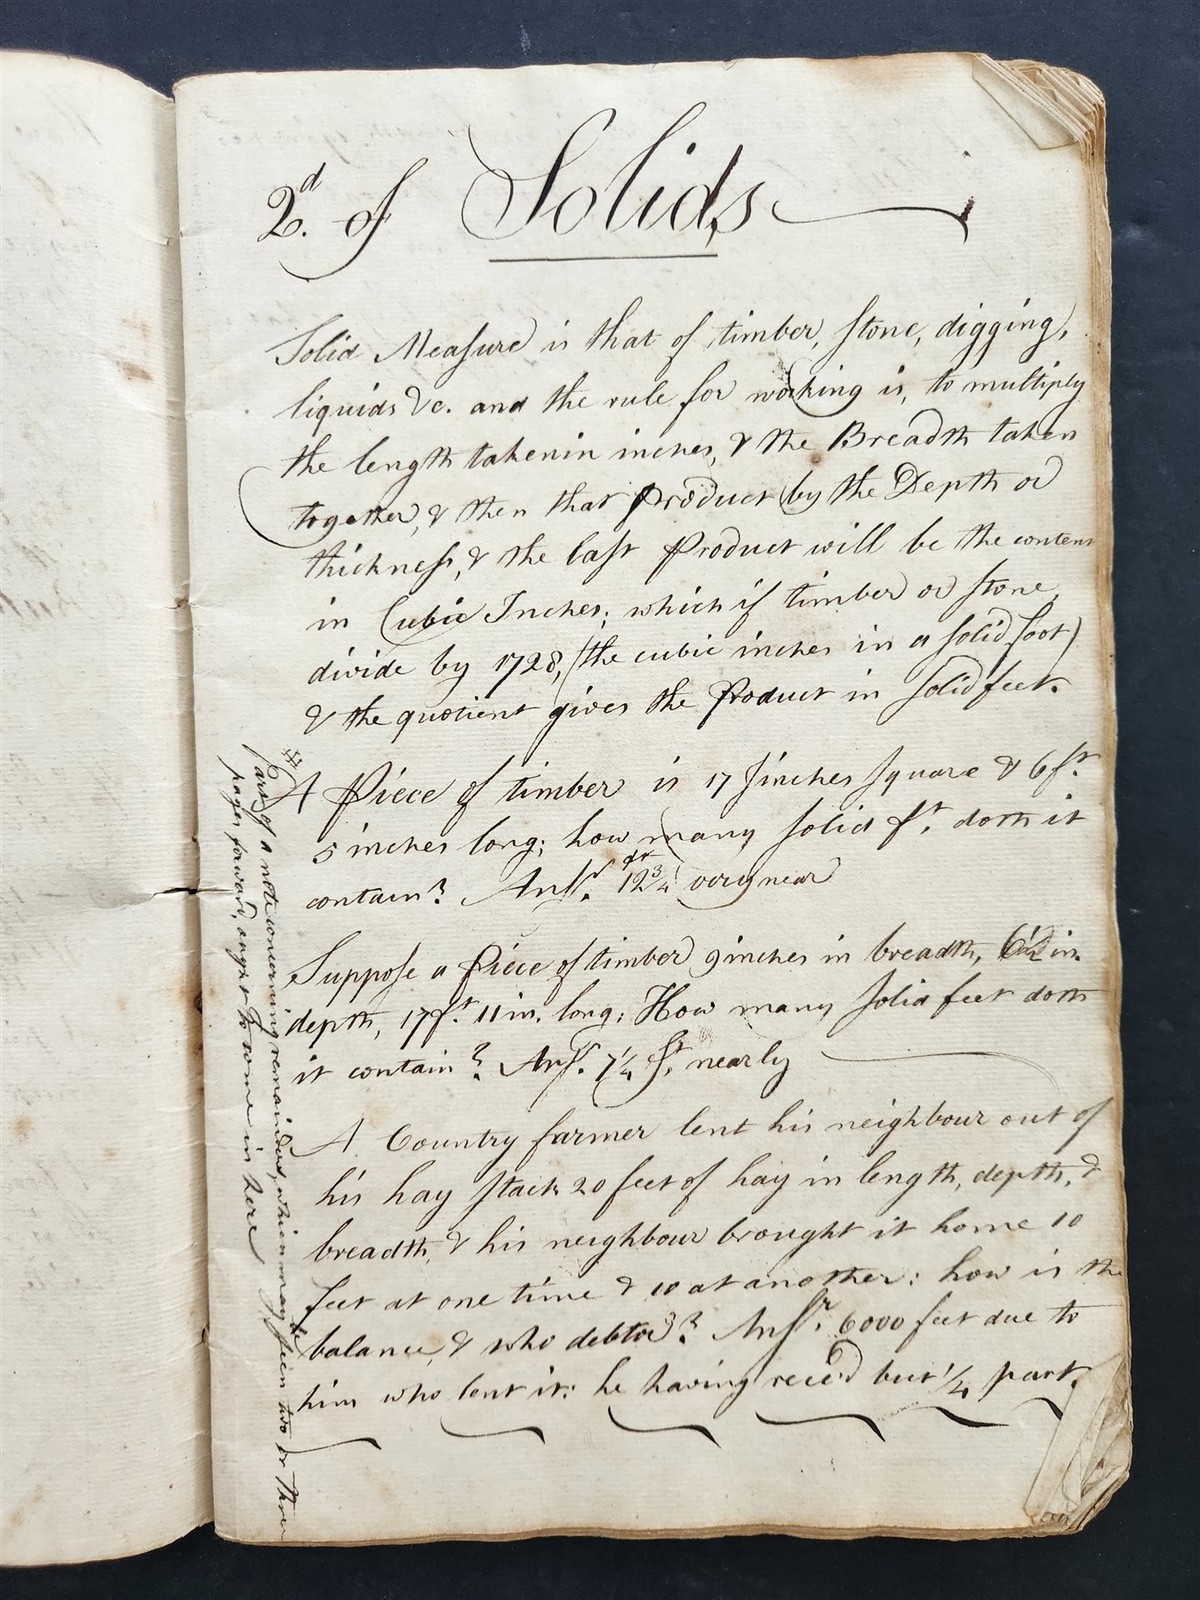 2.d of Solids
Solid Measure is that of timber, stone, digging,
liquids &c. and the rule for working is, to multiply
the length taken in inches, & the Breadth taken
together, & then that product by the Depth or
thickness, & the last Product will be the content
in Cubic Inches; which if timber or stone,
divide by 1728, (the cubic inches in a solid foot)
& the quotient gives the Product in solid feet.
A Piece of timber is 17 inches square & 6 ft
5 inches long; how many solid ft. doth it
contain? Ansr. 12 3/4 ft very near
Suppose a Piece of timber 9 inches in breadth, in
depth, 17 ft. 11 in. long; How many solid feet doth
it contain? Ans. 7 1/4 ft. nearly
A Country farmer lent his neighbour out of
his hay stack 20 feet of hay in length, depth, &
breadth, & his neighbour brought it home 10
feet at one time & 10 at another: how is the
balance, & who debtor? Ansr. 6000 feet due to
him who lent it: he having recd but 1/4 part.
Part of a note concerning remainders, which may be seen two or three
pages forward, ought to come in here